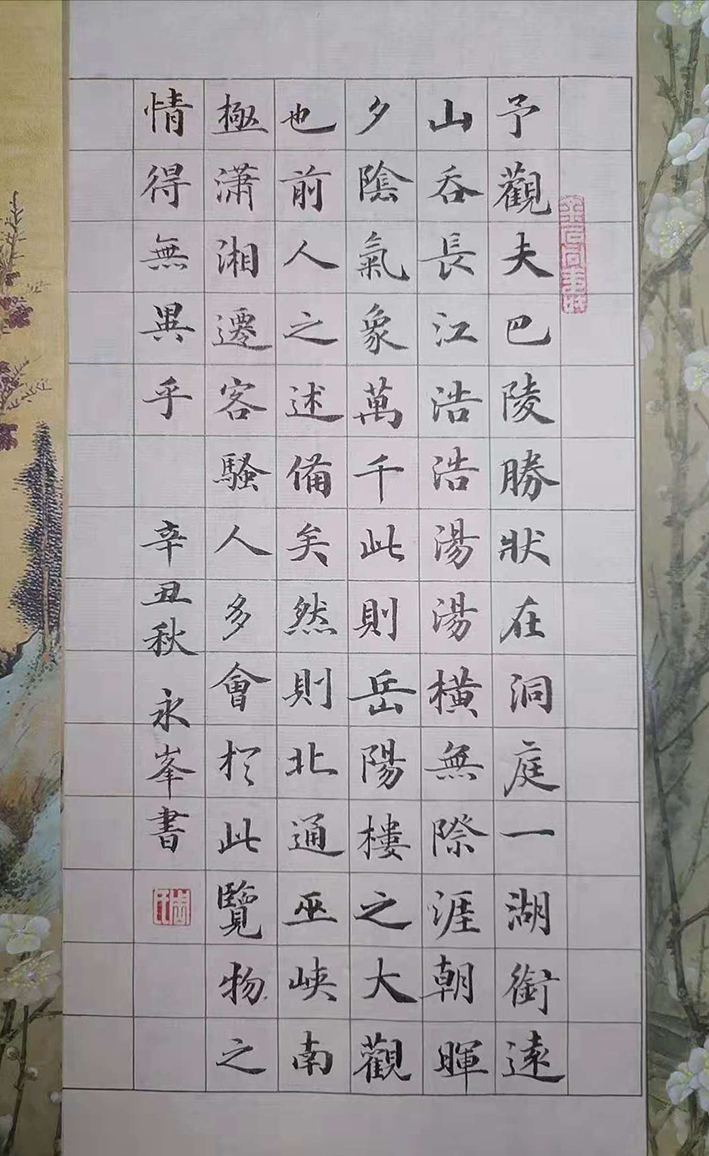 予觀夫巴陵勝狀在洞庭一湖銜遠
山吞長江浩浩湯湯橫無際涯朝暉
夕陰氣象萬千此則岳陽樓之大觀
也前人之述備矣然則北通巫峽南
極瀟湘遷客騷人多會於此覽物之
情得無異乎
辛丑秋 永峯書